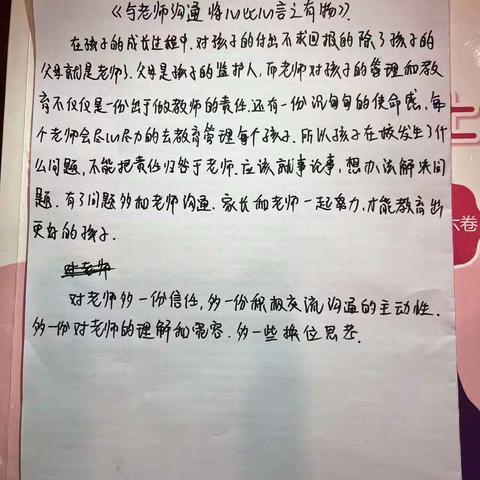 《与老师沟通 将心比心言之有物》.
在孩子的成长过程中.对孩子的付出不求回报的除了孩子的
父母就是老师了.父母是孩子的监护人,而老师对孩子的管理和教
育不仅仅是一份出于做教师的责任.还有一份沉甸甸的使命感,每
个老师会尽心尽力的去教育管理每个孩子.所以孩子在校发生了什
么问题,不能把责任归咎于老师.应该就事论事,想办法解决问
题.有了问题多和老师沟通.家长和老师一起努力,才能教育出
更好的孩子.
对老师
对老师多一份信任,多一份积极交流沟通的主动性.
多一份对老师的理解和宽容.多一些换位思考.
六卷